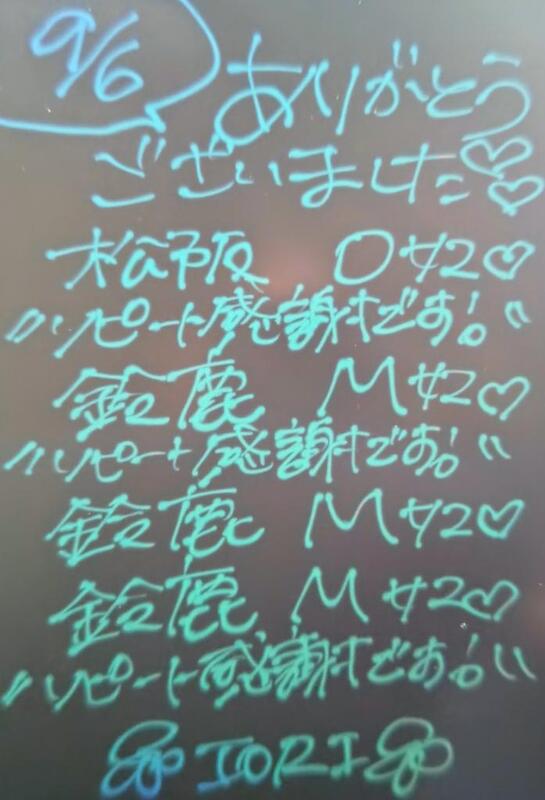 9/6
ありがとう
ございました♡♡
松阪 Oサン♡
"リピート感謝です!。"
鈴鹿 Mサン♡
"リピート感謝です!。"
鈴鹿 Mサン♡
鈴鹿 Mサン♡
"リピート感謝です!。"
IORI